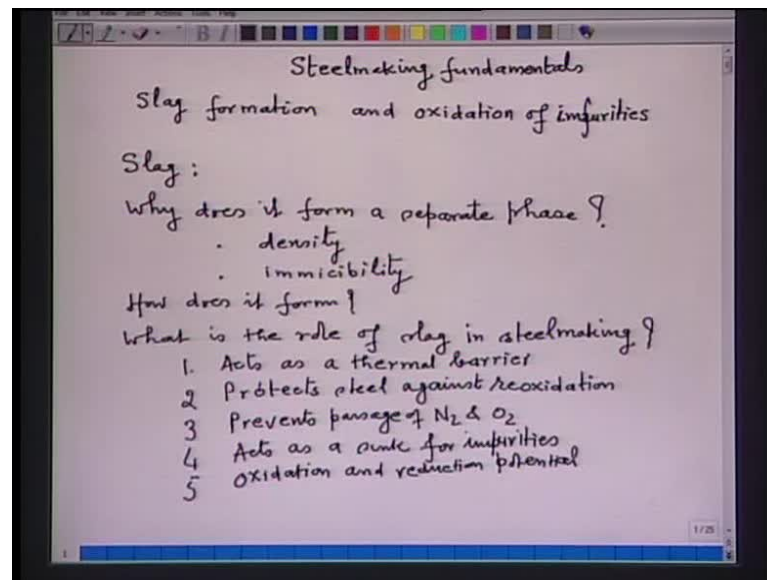 Steelmaking fundamentals
Slag formation and oxidation of impurities
Slag :
Why does it form a separate phase ?
. density
. immicibility
How does it form ?
What is the role of slag in steelmaking ?
1. Acts as a thermal barrier
2 Protects steel against reoxidation
3 Prevents passage of N2 & O2
4 Acts as a sink for impurities
5 Oxidation and reduction potential
1/25
1